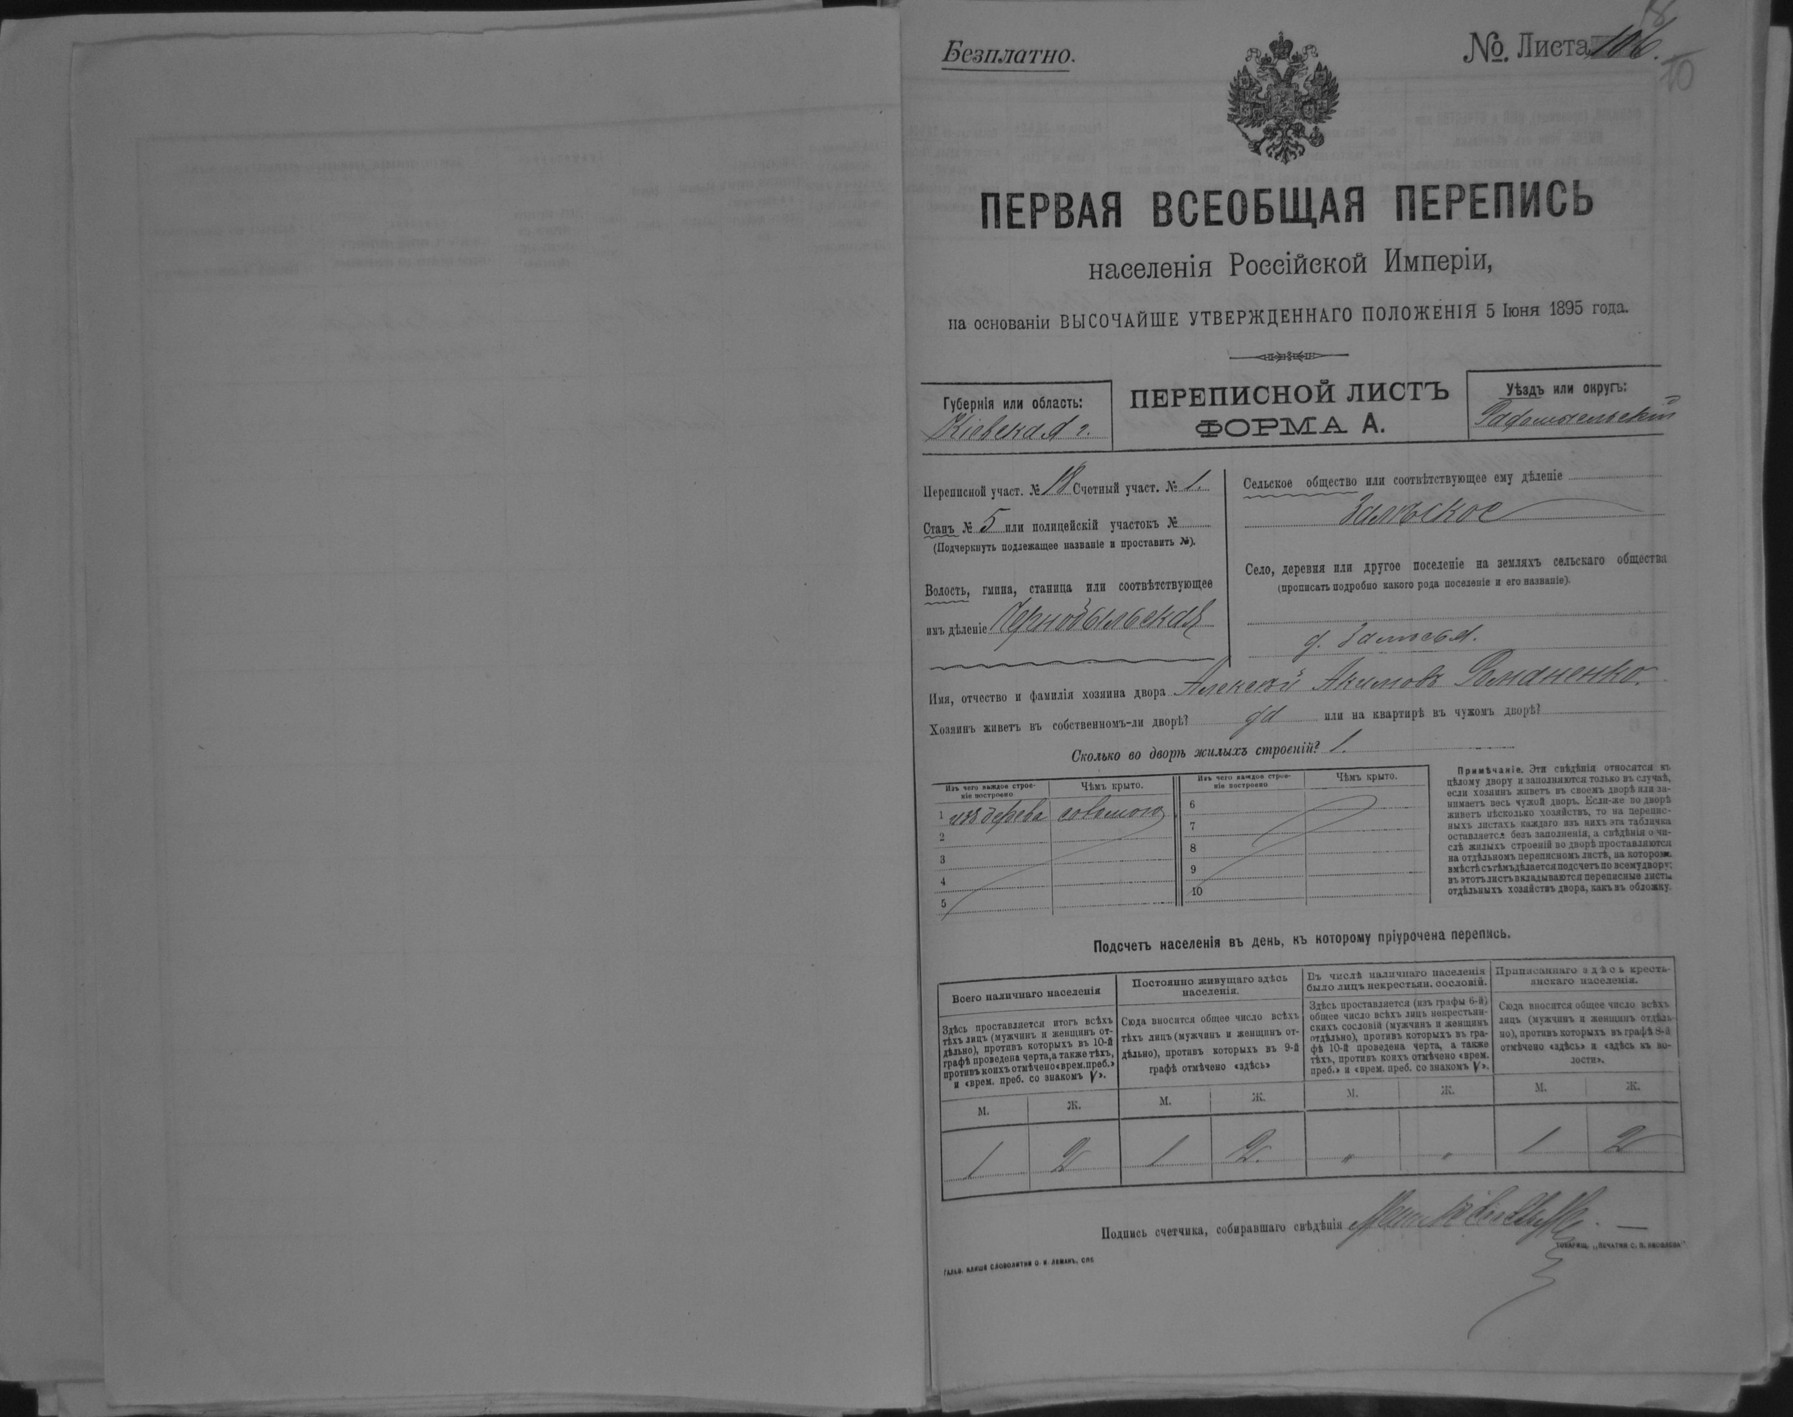 Безплатно.
№. Листа 106.
10
ПЕРВАЯ ВСЕОБЩАЯ ПЕРЕПИСЬ
населенія Россійской Имперіи,
на основаніи ВЫСОЧАЙШЕ УТВЕРЖДЕННАГО ПОЛОЖЕНІЯ 5 Іюня 1895 года.
Губернія или область:
Кіевская г.
ПЕРЕПИСНОЙ ЛИСТЪ
ФОРМА А.
Уѣздъ или округъ:
Радомысльскій
Переписной участ. № 18 Счетный участ. № 1.
Станъ № 5 или полицейскій участокъ №
(Подчеркнуть подлежащее названіе и проставить №).
Волость, гмина, станица или соотвѣтствующее
имъ дѣленіе Чернобыльская
Сельское общество или соотвѣтствующее ему дѣленіе
Залѣское
Село, деревня или другое поселеніе на земляхъ сельскаго общества
(прописать подробно какого рода поселеніе и его названіе).
д. Залесья.
Имя, отчество и фамилія хозяина двора Алексѣй Акимовъ Романенко.
Хозяинъ живетъ въ собственномъ-ли дворѣ? да или на квартирѣ въ чужомъ дворѣ?
Сколько во дворѣ жилыхъ строеній? 1.
Изъ чего каждое строеніе построено
Чѣмъ крыто.
Изъ чего каждое строеніе построено
Чѣмъ крыто.
1 изъ дерева соломою
2
3
4
5
6
7
8
9
10
Примѣчаніе. Эти свѣдѣнія относятся къ
цѣлому двору и заполняются только въ случаѣ,
если хозяинъ живетъ въ своемъ дворѣ или за-
нимаетъ весь чужой дворъ. Если-же по дворѣ
живетъ нѣсколько хозяйствъ, то на перепис-
ныхъ листахъ каждаго изъ нихъ эта табличка
оставляется безъ заполненія, а свѣдѣнія о чи-
слѣ жилыхъ строеній во дворѣ проставляются
на отдѣльномъ переписномъ листѣ, на которомъ
вмѣстѣ съ тѣмъ дѣлается подсчетъ по всему двору;
въ этотъ листъ вкладываются переписные листы
отдѣльныхъ хозяйствъ двора, какъ въ обложку.
Подсчетъ населенія въ день, къ которому пріурочена перепись.
Всего наличнаго населенія
Здѣсь проставляется итогъ всѣхъ
тѣхъ лицъ (мужчинъ и женщинъ от-
дѣльно), противъ которыхъ въ 10-й
графѣ проведена черта, а также тѣхъ,
противъ коихъ отмѣчено «врем. преб.»
и «врем. преб. со знакомъ V».
Постоянно живущаго здѣсь
населенія.
Сюда вносится общее число всѣхъ
тѣхъ лицъ (мужчинъ и женщинъ от-
дѣльно), противъ которыхъ въ 9-й
графѣ отмѣчено «здѣсь»
Въ числѣ наличнаго населенія
было лицъ некрестьян. сословій.
Здѣсь проставляется (изъ графы 6-й)
общее число всѣхъ лицъ некрестьян-
скихъ сословій (мужчинъ и женщинъ
отдѣльно), противъ которыхъ въ гра-
фѣ 10-й проведена черта, а также
тѣхъ, противъ коихъ отмѣчено «врем.
преб.» и «врем. преб. со знакомъ V».
Приписаннаго здѣсь кресть-
янскаго населенія.
Сюда вносится общее число всѣхъ
лицъ (мужчинъ и женщинъ отдѣль-
но), противъ которыхъ въ графѣ 8-й
отмѣчено «здѣсь» и «здѣсь къ во-
лости».
М. Ж. М. Ж. М. Ж. М. Ж.
1 2 1 2. „ „ 1 2
Подпись счетчика, собиравшаго свѣдѣнія
ГАЛЬВ. КЛИШЕ СЛОВОЛИТНИ О. И. ЛЕМАНЪ, СПБ.
ТОВАРИЩ. „ПЕЧАТНЯ С. П. ЯКОВЛЕВА“